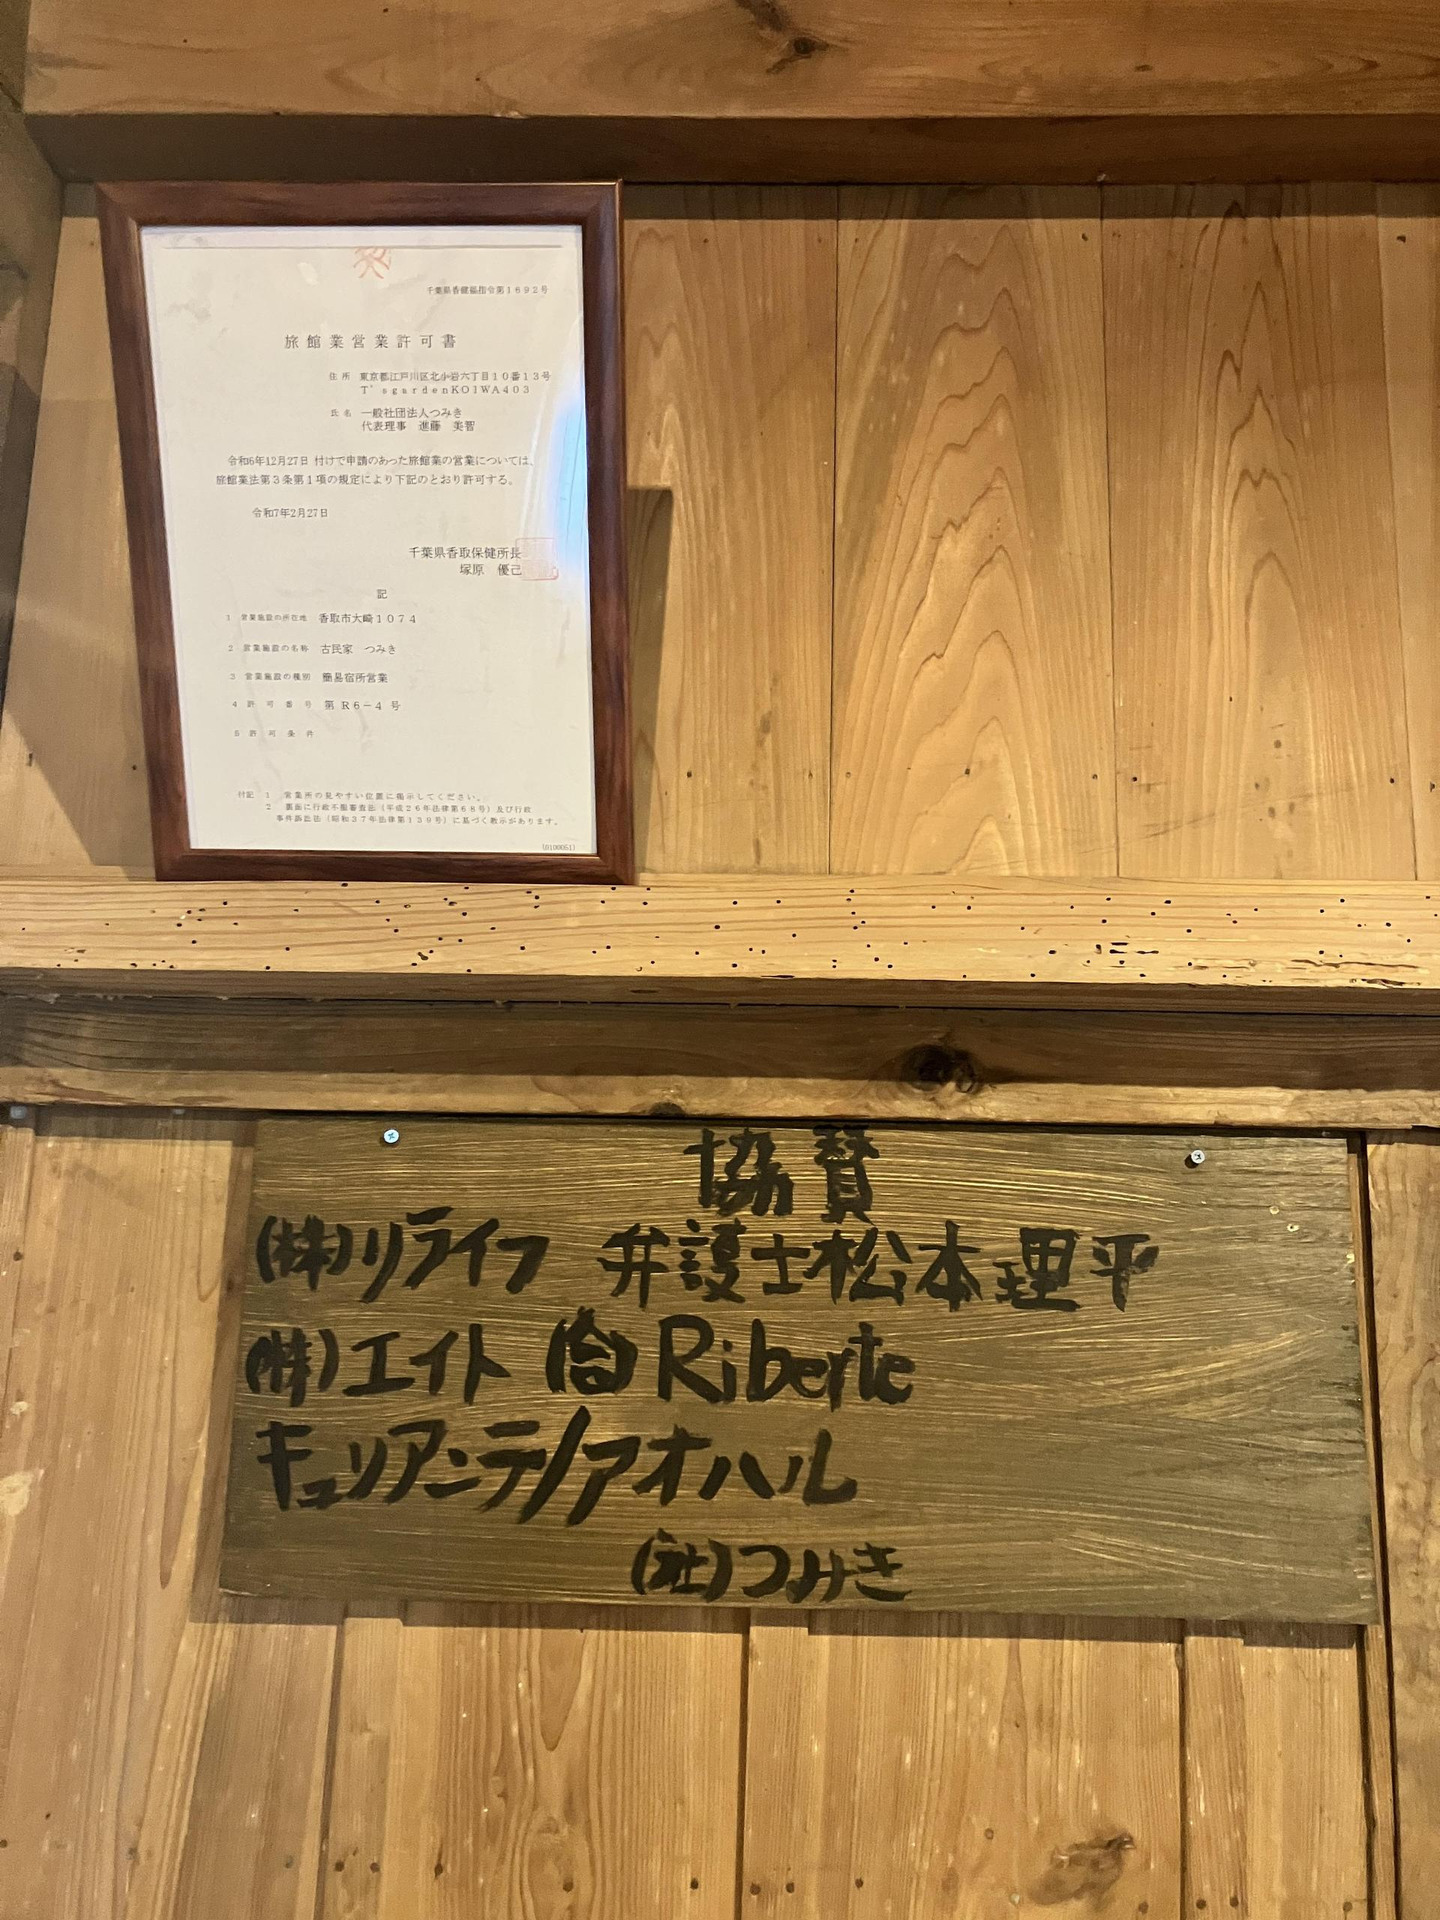 千葉県香健福指令第1692号
旅館業営業許可書
住所 東京都江戸川区北小岩六丁目10番13号
T'sgardenKOIWA403
氏名 一般社団法人つみき
代表理事 進藤 美智
令和6年12月27日 付けで申請のあった旅館業の営業については、
旅館業法第3条第1項の規定により下記のとおり許可する。
令和7年2月27日
千葉県香取保健所長
塚原 優己
記
1 営業施設の所在地 香取市大崎1074
2 営業施設の名称 古民家 つみき
3 営業施設の種別 簡易宿所営業
4 許可番号 第 R6-4 号
5 許可条件
付記 1 営業所の見やすい位置に掲示してください。
2 裏面に行政不服審査法(平成26年法律第68号)及び行政
事件訴訟法(昭和37年法律第139号)に基づく教示があります。
協賛
(株)リライフ 弁護士松本理平
(株)エイト (合)Riberte
キュリアンテ/アオハル
(社)つみき